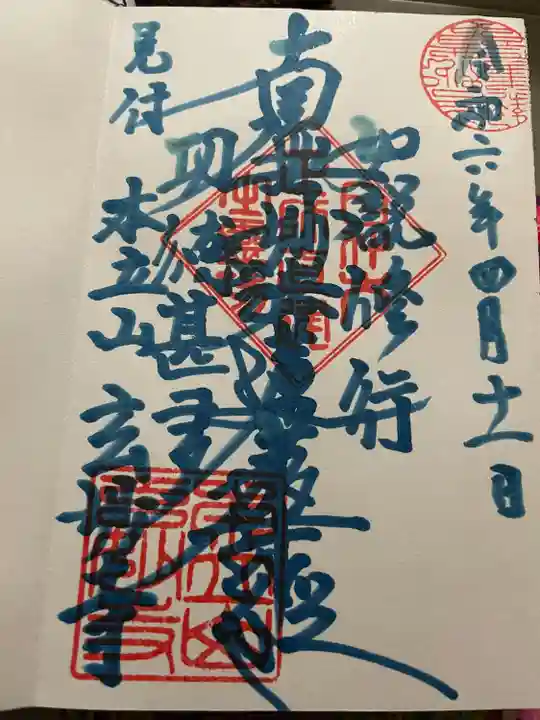 令和六年四月十一日
如説修行
南無妙法蓮華経
功徳甚多
見付
本立山
玄妙寺